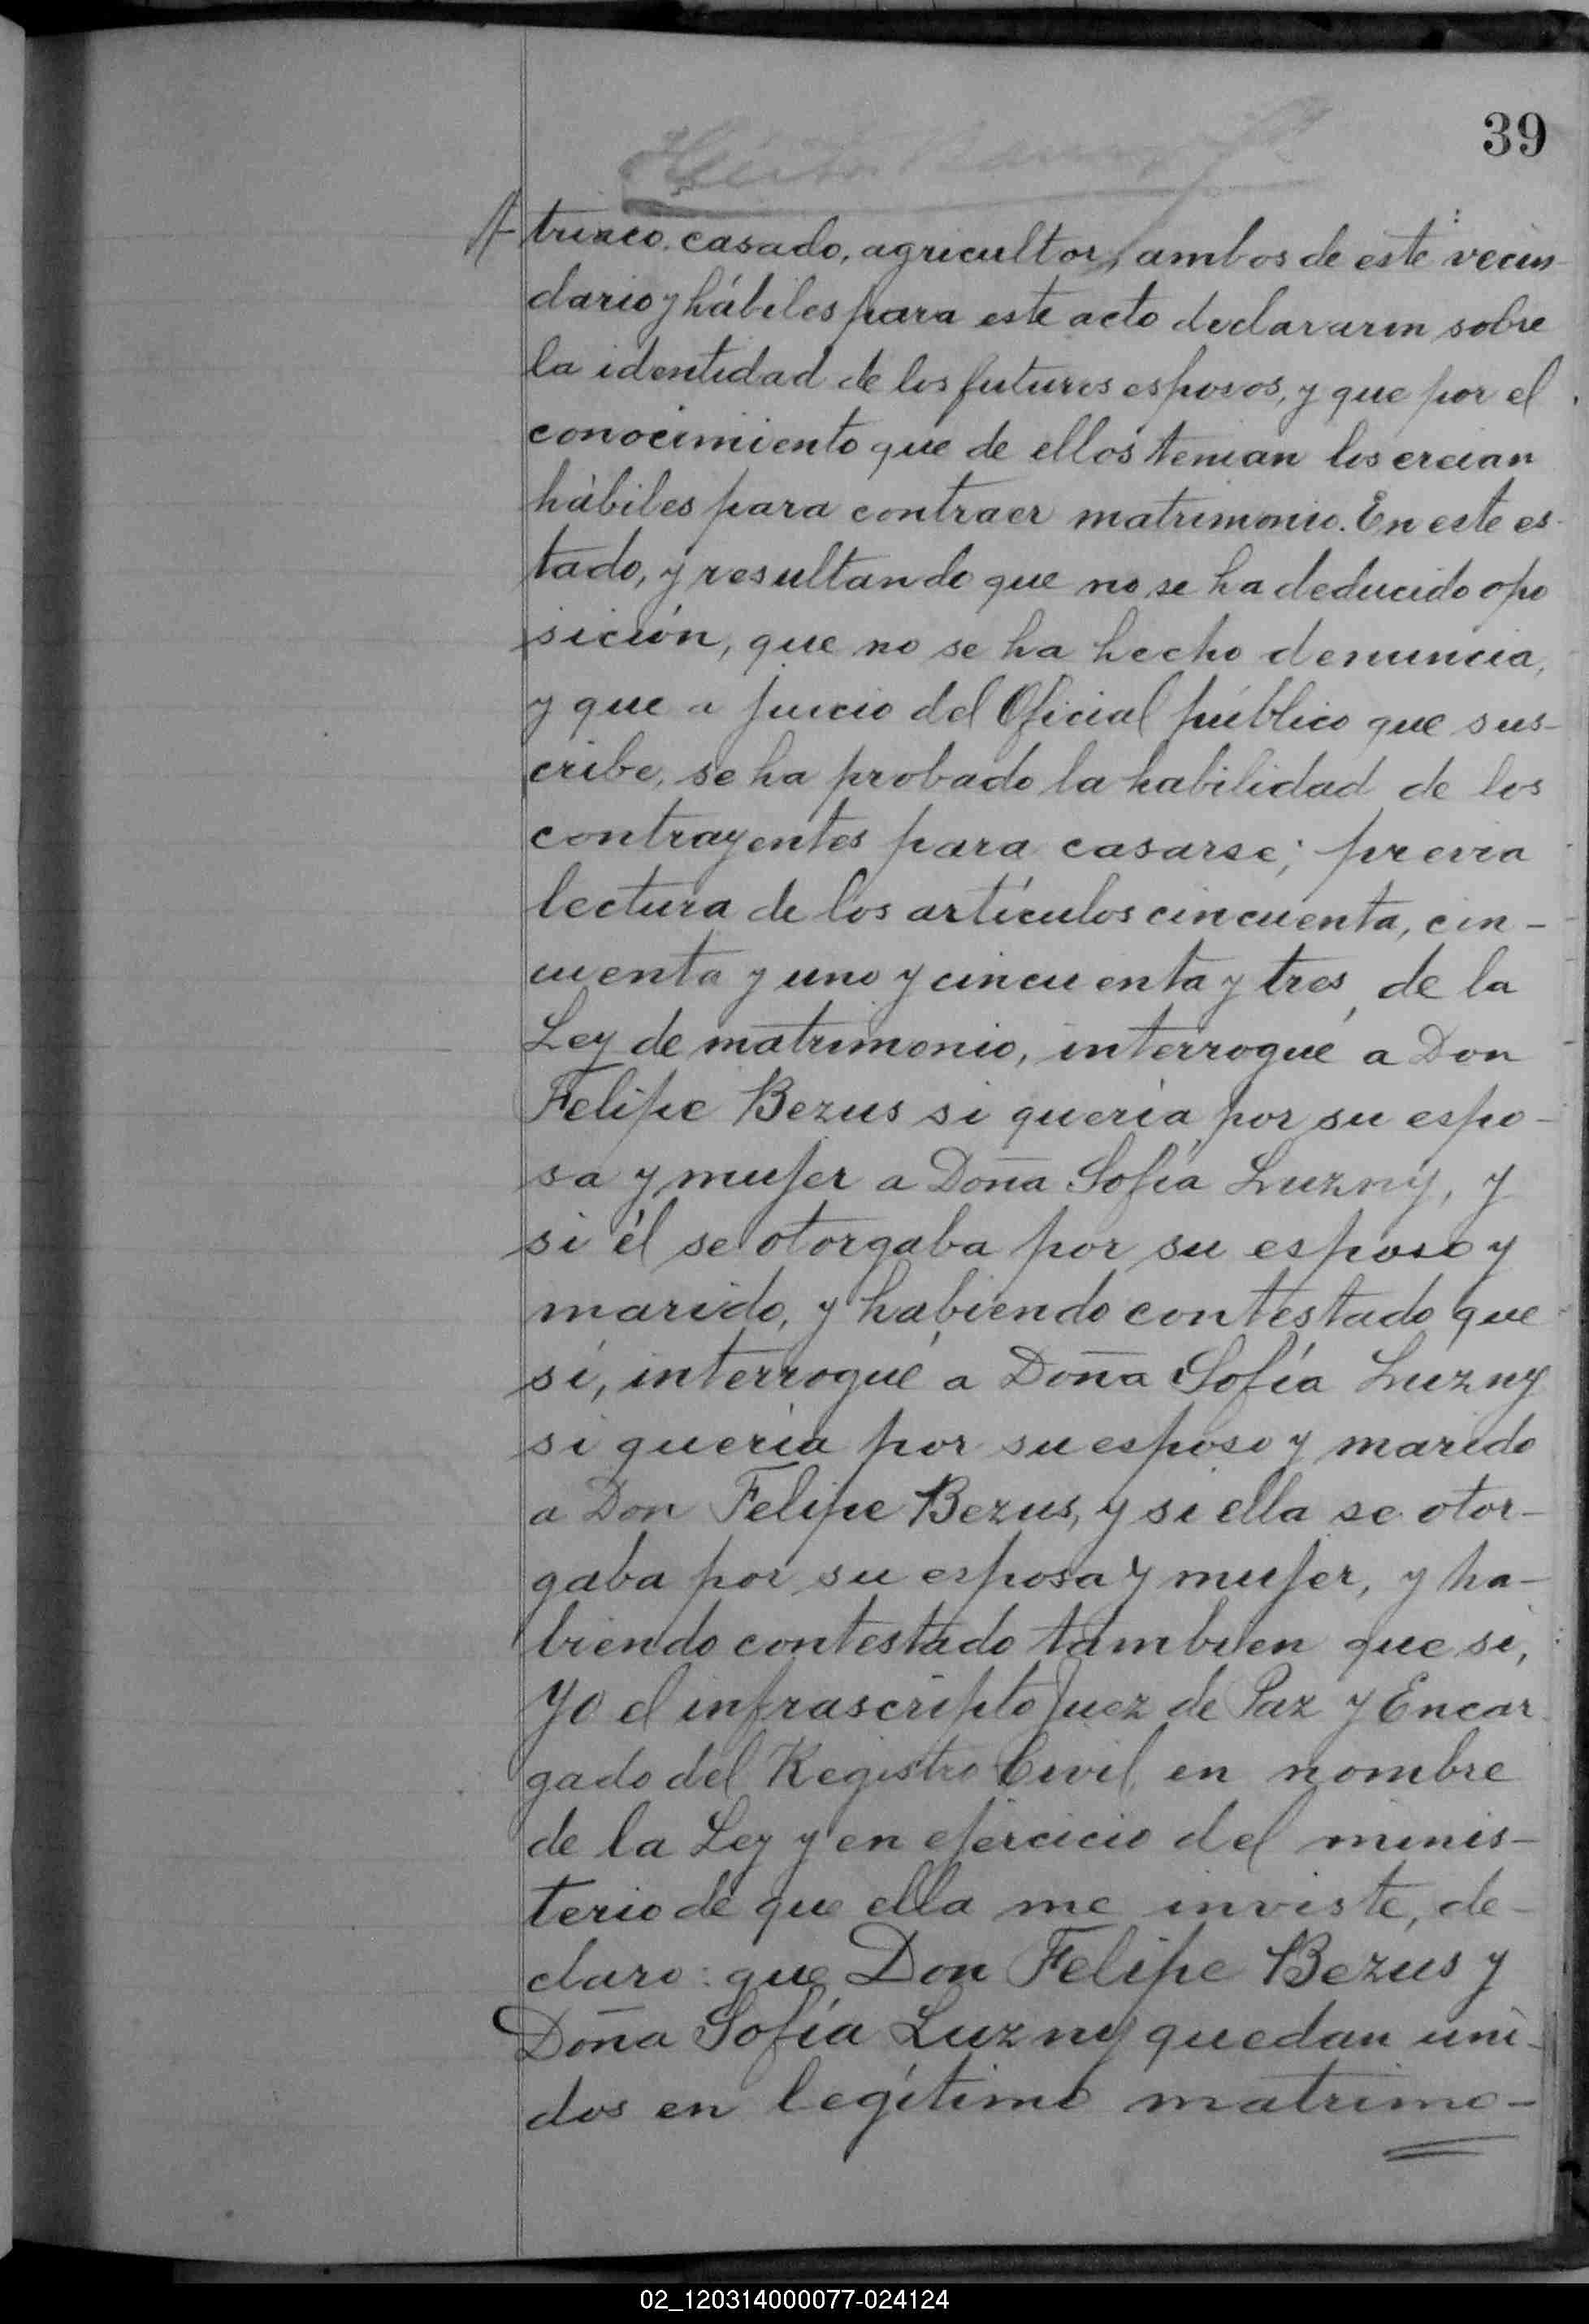 39
triaco. casado, agricultor, ambos de este vecin-
dario y hábiles para este acto declararon sobre
la identidad de los futuros esposos, y que por el
conocimiento que de ellos tenian los creian
hábiles para contraer matrimonio. En este es-
tado, y resultando que no se ha deducido opo
sición, que no se ha hecho denuncia,
y que a juicio del Oficial público que sus-
cribe, se ha probado la habilidad de los
contrayentes para casarse; previa
lectura de los artículos cincuenta, cin-
cuenta y uno y cincuenta y tres, de la
Ley de matrimonio, interrogué a Don
Felipe Bezus si quería por su espo-
sa y mujer a Doña Sofía Luzny, y
si él se otorgaba por su esposo y
marido, y habiendo contestado que
sí, interrogué a Doña Sofía Luzny
si quería por su esposo y marido
a Don Felipe Bezus, y si ella se otor-
gaba por su esposa y mujer, y ha-
biendo contestado tambien que si,
Yo el infrascripto Juez de Paz y Encar
gado del Registro Civil, en nombre
de la Ley y en ejercicio del minis-
terio de que ella me inviste, de-
claro: que Don Felipe Bezus y
Doña Sofía Luzny quedan uni-
dos en legítimo matrimo-
02_120314000077-024124